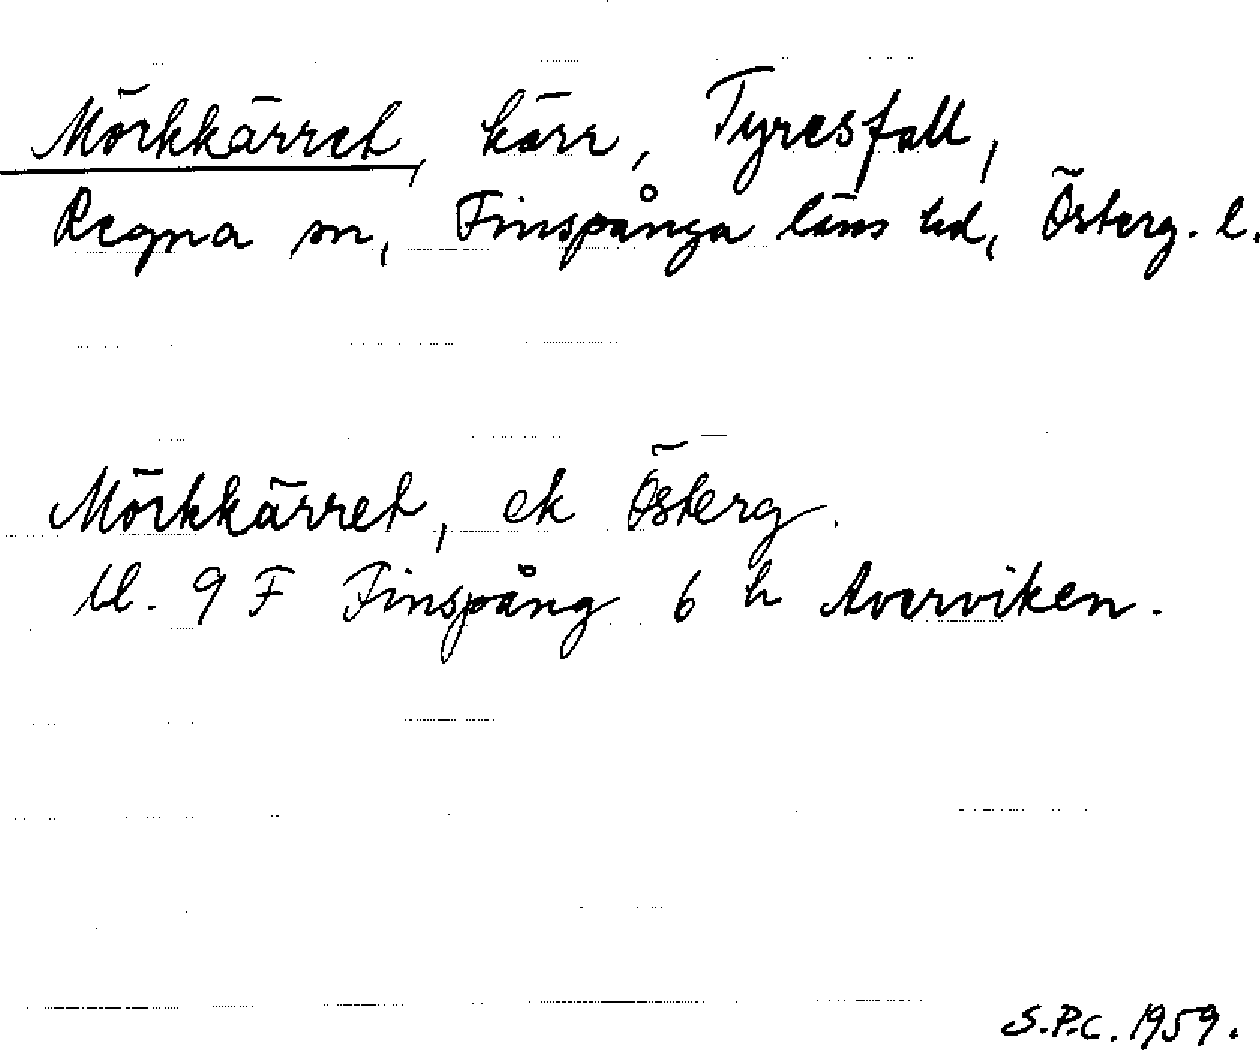 Mörkkärret, kärr, Tyresfall,
Regna sn, Finspånga läns hd, Österg. l.
Mörkkärret, ek Österg.
bl. 9 F Finspång 6 h Averviken.
S.P.C. 1959.